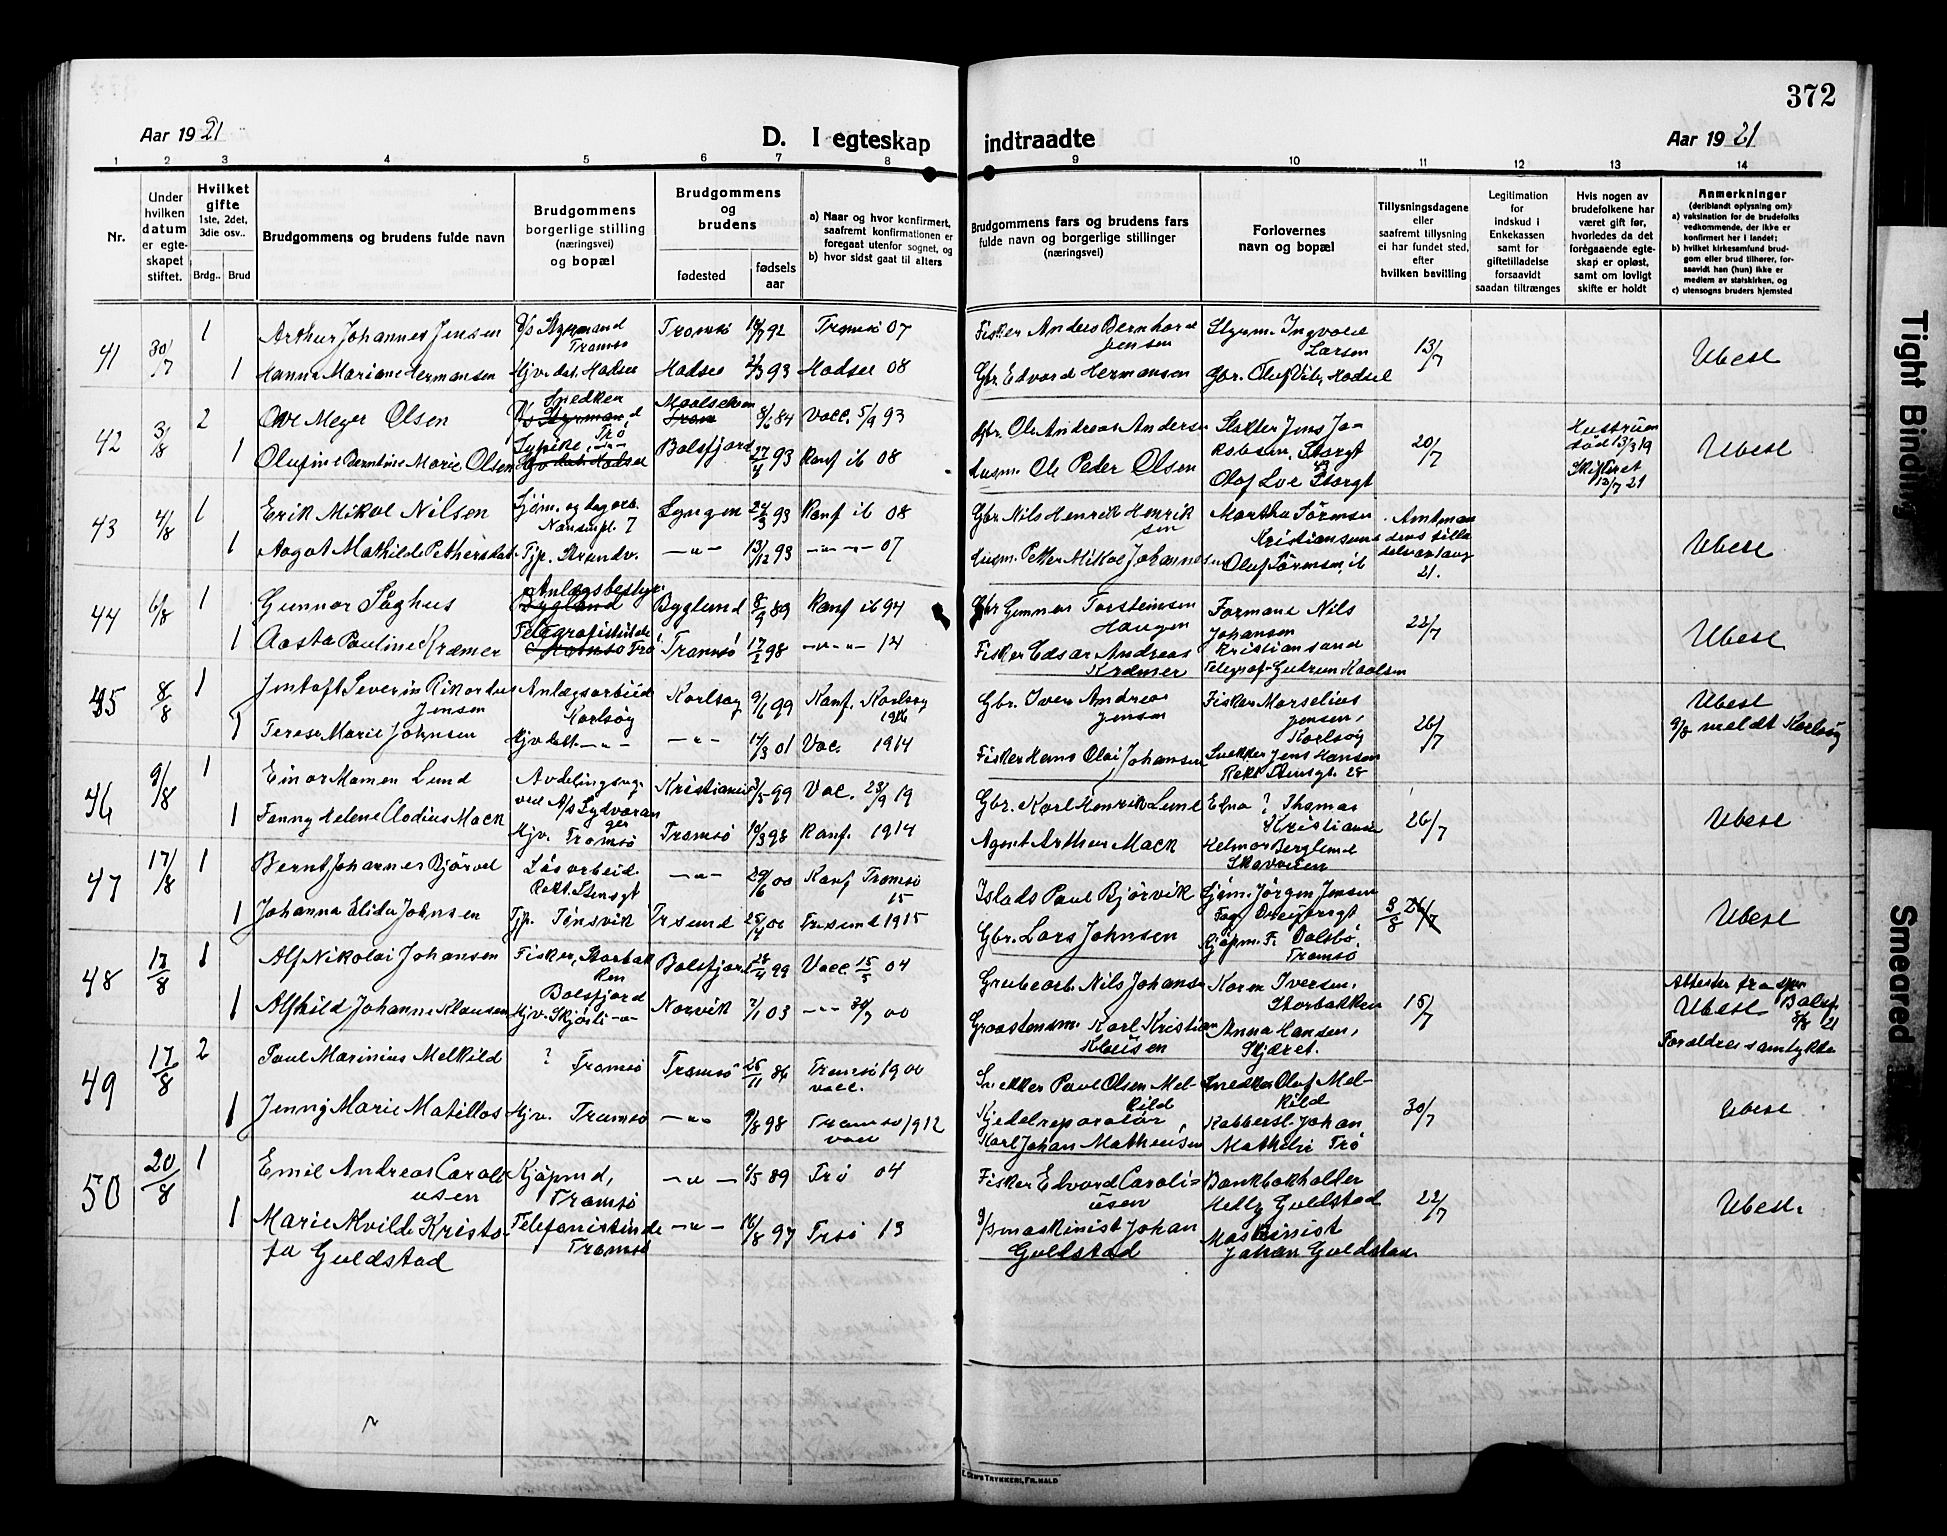 372
Aar 1921
D. I egteskap indtraadte
Aar 1921
1 2 3 4 5 6 7 8 9 10 11 12 13 14
Nr.
Under hvilken datum er egteskapet stiftet.
Hvilket gifte 1ste, 2det, 3die osv..
Brdg.. Brud
Brudgommens og brudens fulde navn
Brudgommens borgerlige stilling (næringsvei) og bopæl
Brudgommens og brudens
fødested
fødselsaar
a) Naar og hvor konfirmert, saafremt konfirmationen er foregaat utenfor sognet, og
b) hvor sidst gaat til alters
Brudgommens fars og brudens fars fulde navn og borgerlige stillinger (næringsvei)
Forlovernes navn og bopæl
Tillysningsdagene eller saafremt tillysning ei har fundet sted, efter hvilken bevilling
Legitimation for indskud i Enkekassen samt for giftetilladelse forsaavidt saadan tiltrænges
Hvis nogen av brudefolkene har været gift før, hvorledes da det foregaaende egteskap er opløst, samt om lovligt skifte er holdt
Anmerkninger
(deriblandt oplysning om:
a) vaksination for de brudefolks vedkommende, der ikke er konfirmert her i landet;
b) hvilket kirkesamfund brudgom eller brud tilhører, forsaavidt han (hun) ikke er medlem av statskirken, og
c) utensogns bruders hjemsted
41 30/7 1 Arthur Johannes Jensen D/s Styrmand Tromsø Tromsö 92 Tromsö 07 Fisker Anders Bernhard Jensen Styrm. Ingvald Larsen 13/7 Ubesl
1 Hanna Mariane Hermansen Hjv. dat. Hadsel Hadsel 93 Hadsel 08 Gbr Edvard Hermansen Gbr. Oluf Vik, Hadsel
42 3/8 2 Ove Meyer Olsen Snedker Trö Maalselven 8/6 84 Vacc. 5/9 93 Gbr. Ole Andreas Anders Slakter Jens Jakobsen, Storgt 43 20/7 Hustruen död 13/3 19 Skifteret 13/7 21 Ubesl
1 Olufine Berntine Marie Olsen Sypike Balsfjord 27/4 93 Konf ib 08 Lusm. Ole Peder Olsen Olaf Loe Storgt
43 4/8 1 Erik Mikal Nilsen Sjöm. og dagarb. Nansenpl. 7 Lyngen 24/3 93 Konf ib 08 Gbr Nils Henrik Henriksen Martha Sörensen Kristiansens Amtmandens tilladelse 21. Ubesl
1 Aagot Mathilde Pethersdat. Tjp. Strandv. -"- 13/12 93 -"- -"- 07 Lusm. Petter Mikal Johannesen Oluf Sörensen, ib
44 6/8 1 Gunnar Saghus Anlægsbestyr Bygland 8/9 89 Konf ib 94 Gbr Gunnar Torsteinsen Haugen Formand Nils Johansen Kristiansand 22/7 Ubesl
1 Aasta Pauline Kræmer Telegrafistinde Trö Tromsö 17/2 98 -"- -"- 14 Fisker Edsar Andreas Kræmer Telegraf. Gudrun Karlsen
45 8/8 1 Jentoft Severin Rikardus Jensen Anlægsarbeid Karlsöy Karlsöy 9/6 99 Konf. Karlsöy 1916 Gbr. Iver Andreas Jensen Fisker Marselius Jensen, Karlsöy 26/7 Ubesl 9/8 meldt Karlsöy
1 Terese Marie Johnsen Hjv datt. -"- -"- 17/3 01 Vac. 1914 Fisker Hans Olai Johansen Snekker Jens Hansen Rekt Stensgt. 28
46 9/8 1 Einar Mamen Lund Avdelingsing. ved A/s Sydvaranger Kristiania 3/5 99 Vac. 23/9 19 Gbr. Karl Henrik Lund Edna ? Thomas Kristiania 26/7 Ubesl
1 Fanny Helene Clodius Mack Hjv. Tromsö Tromsö 10/3 98 Konf. 1914 Agent Arthur Mack
47 17/8 1 Bernt Johannes Björvik Lösarbeid. Rekt. Stensgt -"- 29/6 00 Konf Tromsö 15 Paul Björvik Sjöm. Jörgen Jensen 3/8 26/7 Ubesl
1 Johanna Elida Johnsen Tjp. Tönsvik Trsund 25/4 00 Trsund 1915 Gbr. Lars Johnsen Kjöpm. F. Dalsbö, Tromsö
48 17/8 1 Alf Nikolai Johansen Fisker, Storbakken Balsfjord Balsfjord 28/4 99 Vacc. 15/5 04 Grubearb. Nils Johansen Karen Iversen, Storbakken 15/7 Attester fra spr. Balsf. 8/8 21 Ubesl
1 Alfhild Johanne Klausen Hjv. Skjærli -"- Narvik 7/1 03 -"- 30/9 00 Graastensm. Karl Kristian Klausen Anna Hansen, Skjæret. Forældres samtykke
49 17/8 2 Paul Marinius Melkild ? Tromsö Tromsö 26/11 86 Tromsö 1900 vacc. Snekker Paul Olsen Melkild Snedker Olaf Melkild 30/7 Ubesl
1 Jenny Marie Matillas Hjv. Tromsö -"- 9/8 98 Tromsö 1912 vacc Kjedelreparatör, Karl Johan Matheusen Kobbersl. Johan Trö
50 20/8 1 Emil Andreas Caroliusen Kjöpmd, Tromsö -"- 1/5 89 Trö 04 Fisker Edvard Caroliusen Bankbokholder Helly Guldstad 22/7 Ubesl.
1 Marie Alvilde Kristofa Guldstad Telefonistinde Tromsö -"- 16/8 97 Trsö 13 D/s maskinist Johan Guldstad Maskinist Johan Guldstad
TRYKKERI, FR.HALD
Tight Binding
Smeared